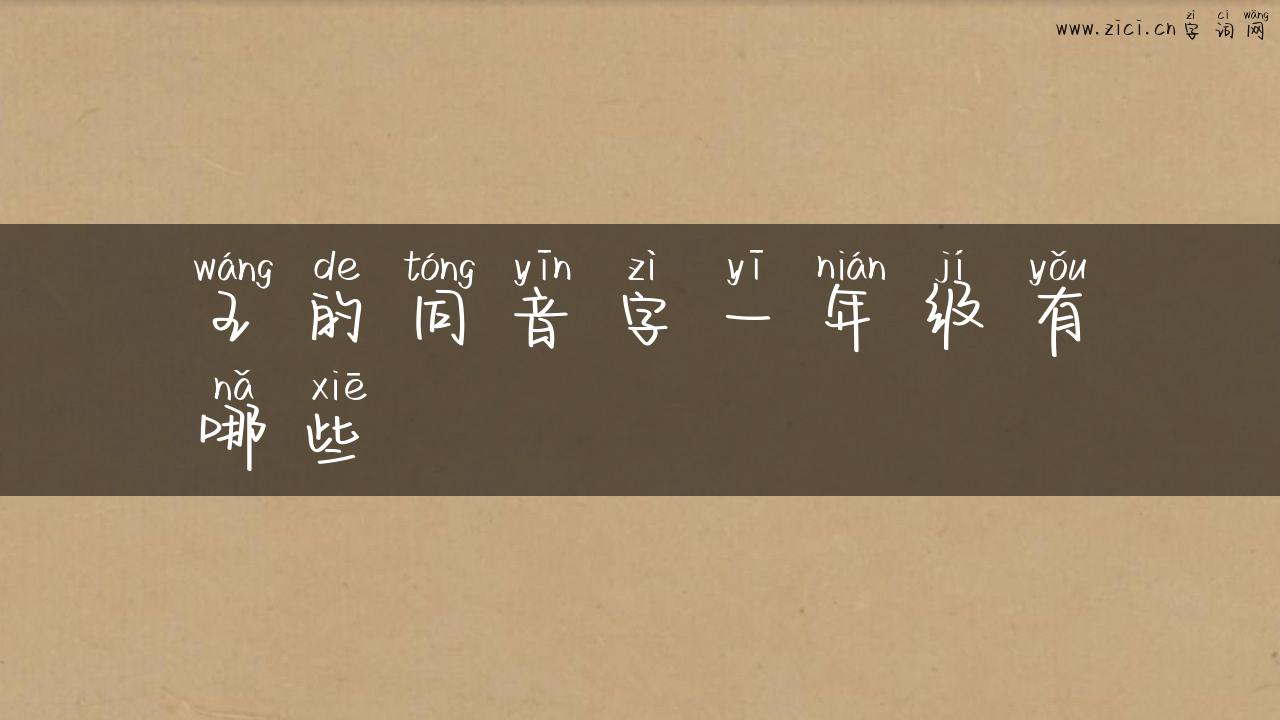 www.zici.cn 字词网
zì cí wǎng
wáng de tóng yīn zì yī nián jí yǒu
王的同音字一年级有
nǎ xiē
哪些